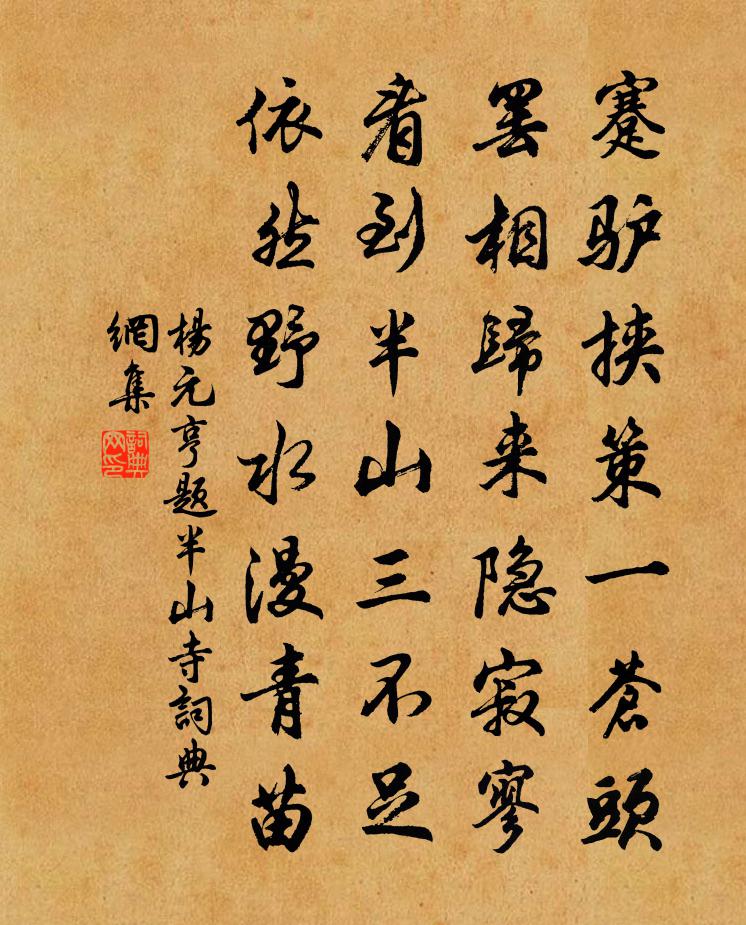 蹇驴挟策一苍頭
罢相歸来隐寂寥
看到半山三不足
依然野水漫青苗
楊元亨题半山寺詞典
網集
詞典
网印